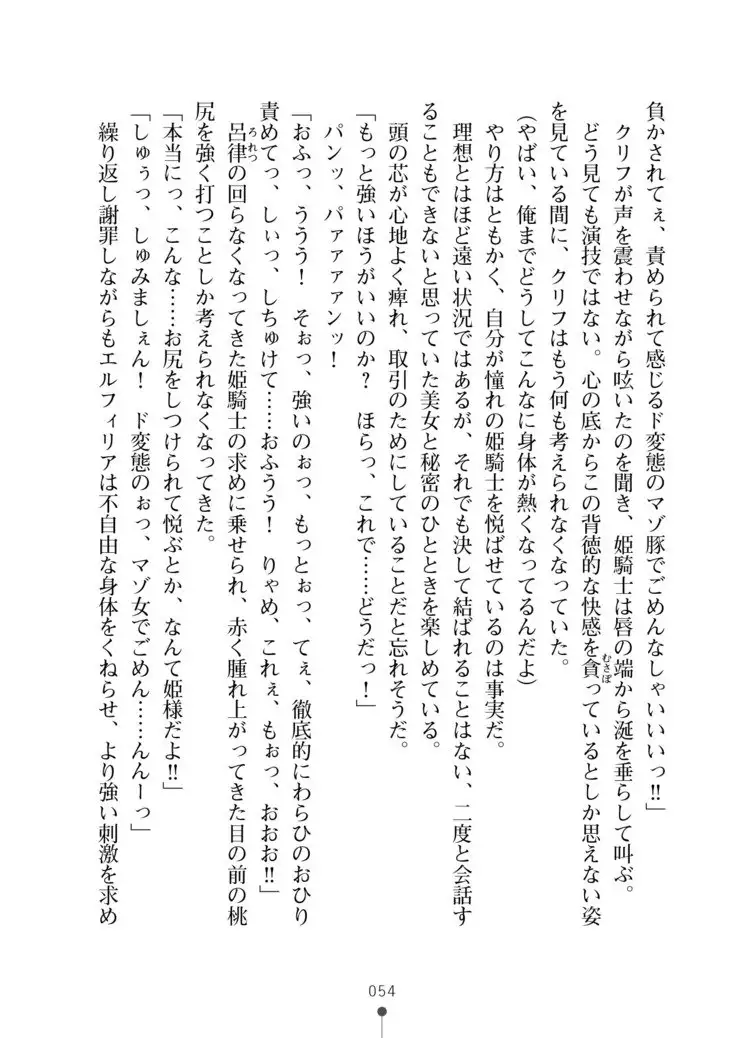 負かされてぇ、責められて感じるド変態のマゾ豚でごめんなしゃいいいっ‼」
クリフが声を震わせながら呟いたのを聞き、姫騎士は唇の端から涎を垂らして叫ぶ。
どう見ても演技ではない。心の底からこの背徳的な快感を貪っているとしか思えない姿
むさぼ
を見ている間に、クリフはもう何も考えられなくなっていた。
(やばい、俺までどうしてこんなに身体が熱くなってるんだよ)
やり方はともかく、自分が憧れの姫騎士を悦ばせているのは事実だ。
理想とはほど遠い状況ではあるが、それでも決して結ばれることはない、二度と会話す
ることもできないと思っていた美女と秘密のひとときを楽しめている。
頭の芯が心地よく痺れ、取引のためにしていることだと忘れそうだ。
「もっと強いほうがいいのか?　ほらっ、これで……どうだっ!」
パンッ、パァァァンッ!
「おふっ、ううう!　そぉっ、強いのぉっ、もっとぉっ、てぇ、徹底的にわらひのおひり
責めてっ、しぃっ、しちゅけて……おふうう!　りゃめ、これぇ、もぉっ、おおお‼」
呂律の回らなくなってきた姫騎士の求めに乗せられ、赤く腫れ上がってきた目の前の桃
ろれつ
尻を強く打つことしか考えられなくなってきた。
「本当にっ、こんな……お尻をしつけられて悦ぶとか、なんて姫様だよ‼」
「しゅぅっ、しゅみましぇん!　ド変態のぉっ、マゾ女でごめん……んんーっ」
繰り返し謝罪しながらもエルフィリアは不自由な身体をくねらせ、より強い刺激を求め
054